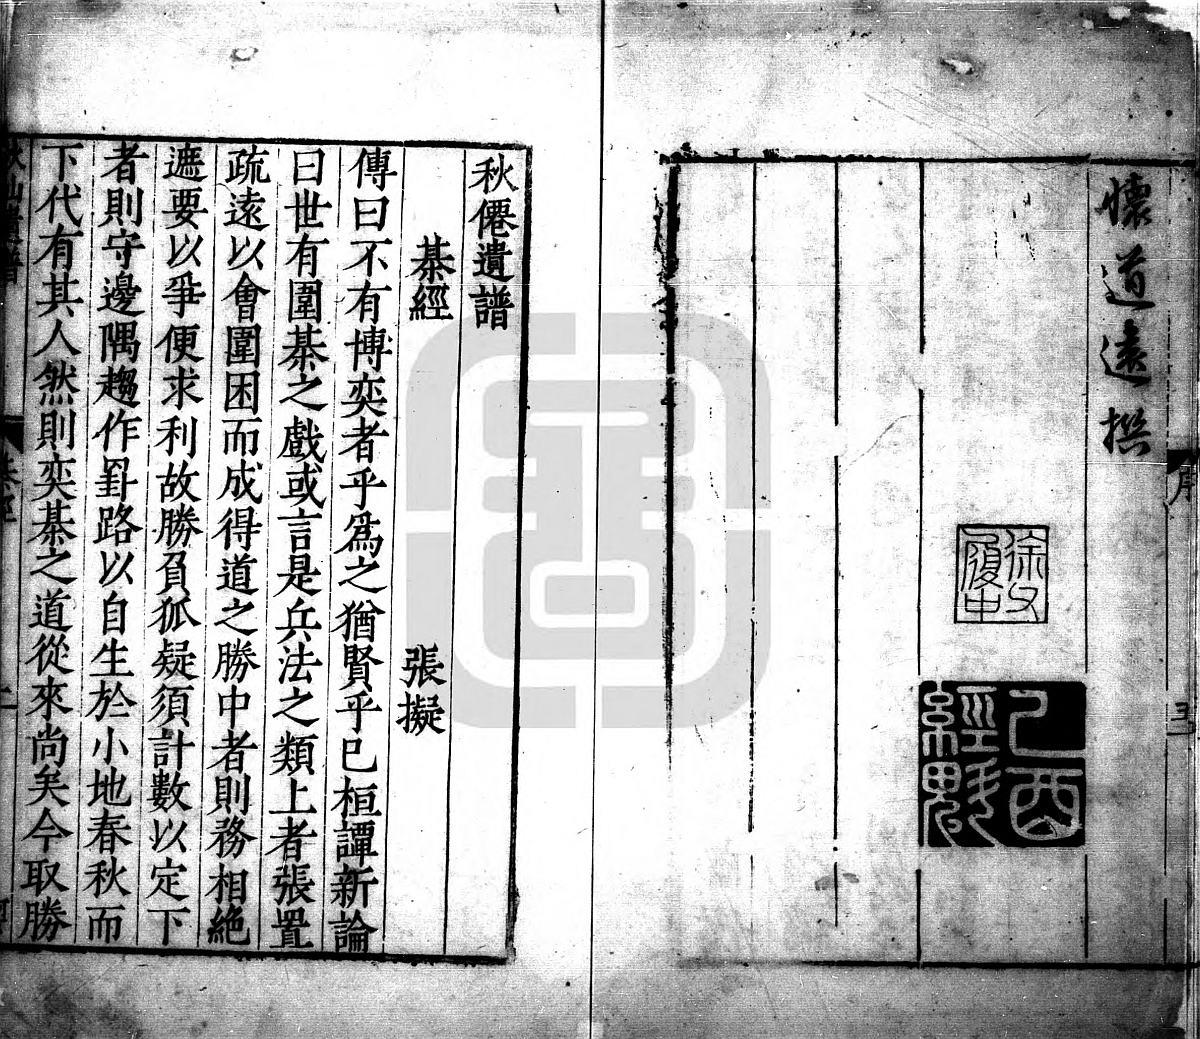 懷道遠撰
徐文
履中
乙酉
經魁
序
秋僊遺譜
棊經
張擬
傳曰不有博奕者乎爲之猶賢乎已桓譚新論
曰世有圍棊之戲或言是兵法之類上者張置
疏遠以會圍困而成得道之勝中者則務相絕
遮要以爭便求利故勝負狐疑須計數以定下
者則守邊隅趨作罫路以自生於小地春秋而
下代有其人然則奕棊之道從來尚矣今取勝